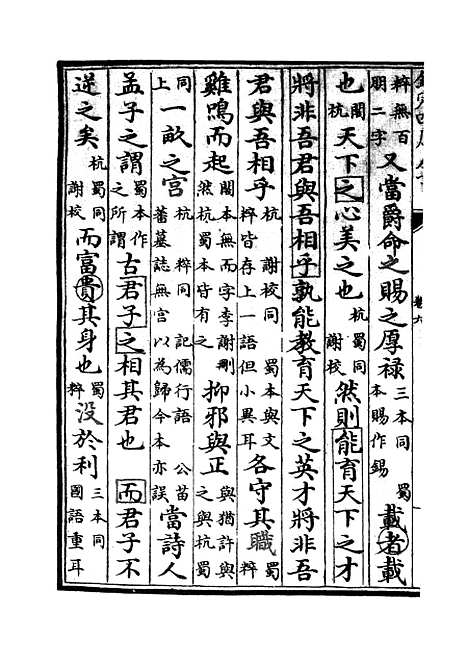 粹無百
朋二字
又當爵命之賜之厚祿
三本同 蜀
本賜作錫
載者載
也
閣
杭
天下之心美之也
杭蜀同
謝校
然則能育天下之才
將非吾君與吾相乎孰能教育天下之英才將非吾
君與吾相乎
杭 謝校同 蜀本與文
粹皆存上一語但小異耳
各守其職
粹
雞鳴而起
閣本無而字李謝刪
然杭蜀本皆有之
抑邪與正
與猶許與
之與杭蜀
同
上
一畝之宮
杭 粹同 記儒行語 公苗
蕃墓誌無宮以為歸今本亦誤
當詩人
孟子之謂
蜀本作
之所謂
古君子之相其君也 而君子不
逆之矣
杭蜀同
謝校
而富貴其身也
蜀
粹
没於利
三本同
國語重耳